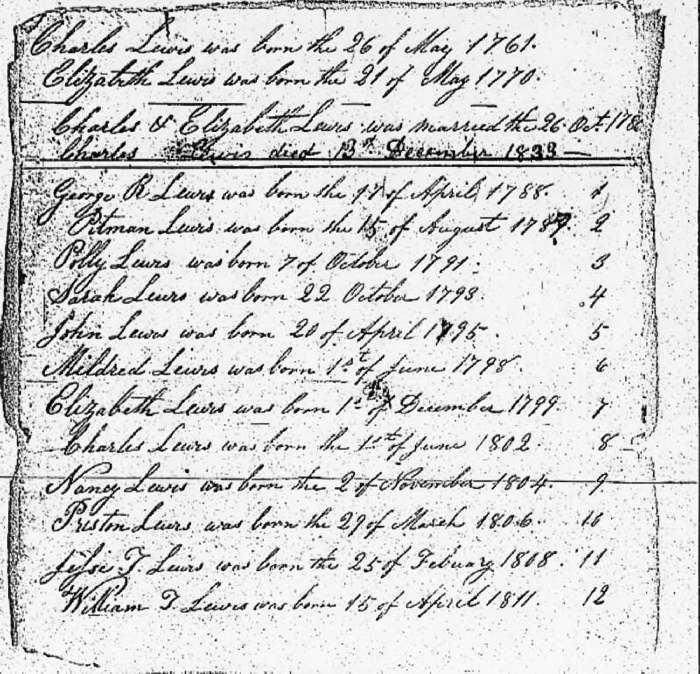 Charles Lewis was born the 26 of May 1761.
Elizabeth Lewis was born the 21 of May 1770.
Charles & Elizabeth Lewis was married the 26 Oct. 178
Charles Lewis died 13th December 1833 —
George R Lewis was born the 17 of April 1788. 1
Pitman Lewis was born the 15 of August 1789. 2
Polly Lewis was born 7 of October 1791. 3
Sarah Lewis was born 22 October 1793. 4
John Lewis was born 20 of April 1795. 5
Mildred Lewis was born 1st of June 1798. 6
Elizabeth Lewis was born 1st of December 1799 7
Charles Lewis was born the 1st of June 1802. 8
Nancy Lewis was born the 2 of November 1804. 9
Preston Lewis was born the 29 of March 1806. 10
Jesse T. Lewis was born the 25 of Febuary 1808. 11
William T. Lewis was born 15 of April 1811. 12